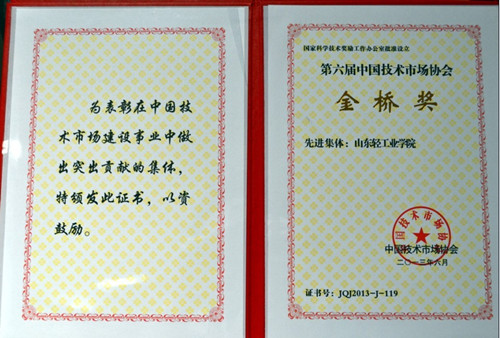 为表彰在中国技
术市场建设事业中做
出突出贡献的集体，
特颁发此证书，以资
鼓励。
国家科学技术奖励工作办公室批准设立
第六届中国技术市场协会
金桥奖
先进集体：山东轻工业学院
中国技术市场协会
中国技术市场协会
二〇一三年六月
证书号：JQJ2013-J-119